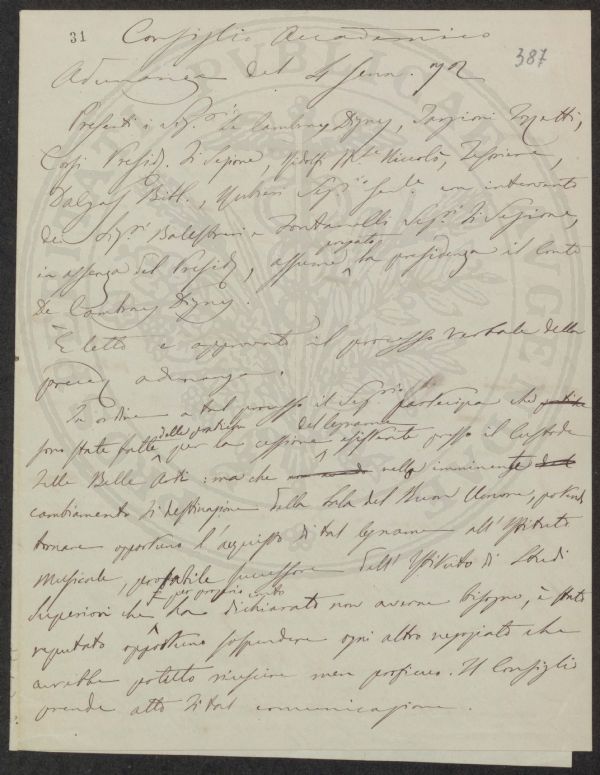 31
387
Consiglio Accademico
Adunanza del 4 Genn. 92
Presenti i Sigri De Cambray Digny, Targioni Tozzetti,
Corsi Presid. di Sezione, Ridolfi Mse Niccolò, Tesoriere,
Dalgas Bibl., Segro Gen.le con intervento
dei Sigri Balestreri e Fontanelli Segri di Sezione,
in assenza del Presidte, assume pregato la presidenza il Conte
De Cambray Digny.
È letto e approvato il processo verbale della
preced. adunanza.
In ordine a tal processo il Segrio partecipa che
sono state fatte delle pratiche per la cessione del legname esistente presso il Custode
delle Belle Arti: ma che nella imminente
cambiamento di destinazione della Sala del Buon Umore, potendo
tornare opportuno l'acquisto di tal legname all'Istituto
Musicale, probabile successore dell'Istituto di Studi
Superiori che per proprio conto ha dichiarato non averne bisogno, è stato
reputato opportuno sospendere ogni altro negoziato che
avrebbe potuto riuscire men proficuo. Il Consiglio
prende atto di tal comunicazione.